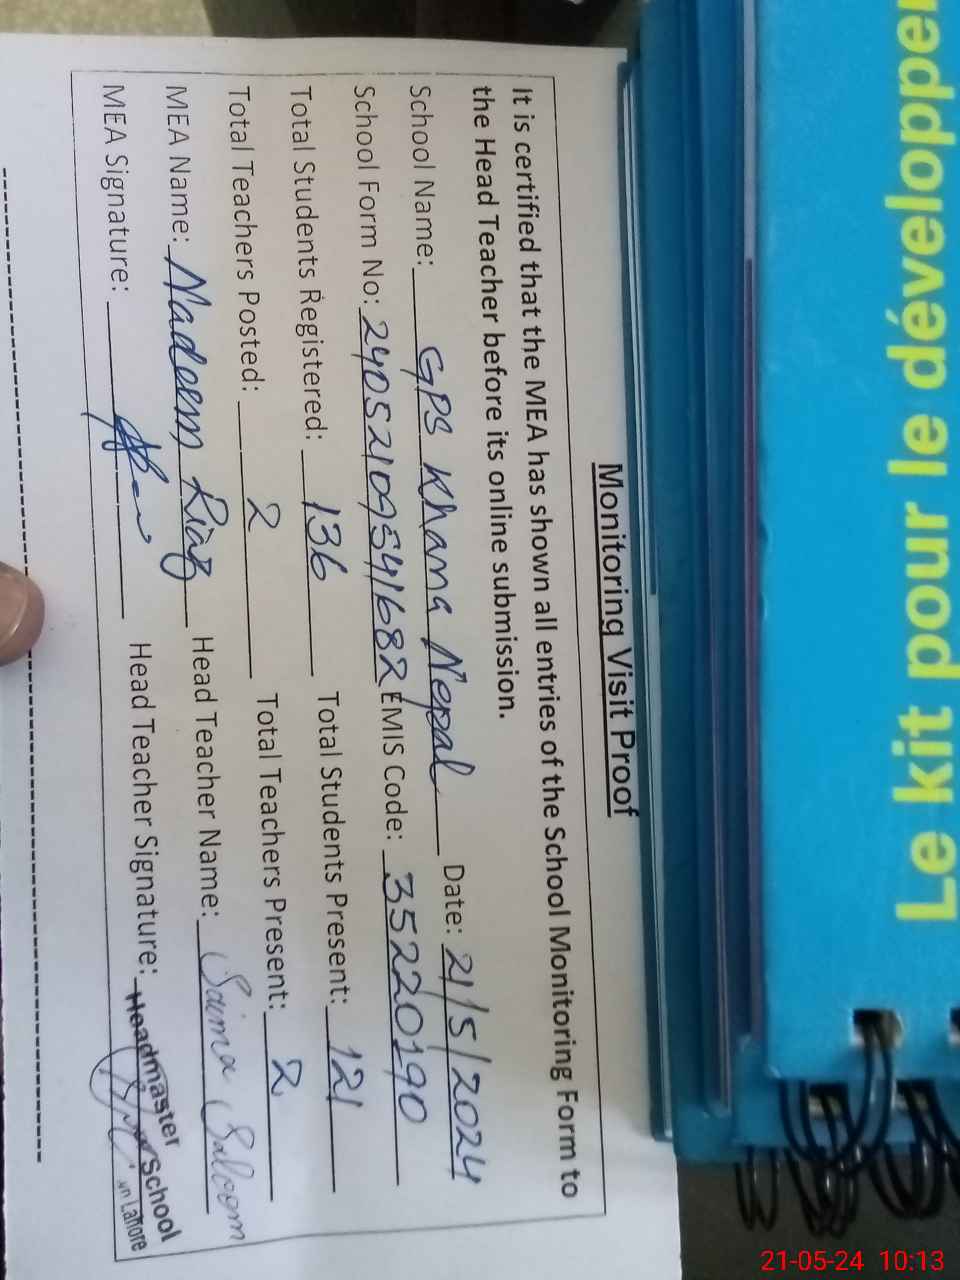 Monitoring Visit Proof
It is certified that the MEA has shown all entries of the School Monitoring Form to
the Head Teacher before its online submission.
School Name: GPS Khana Nepal Date: 21/5/2024
School Form No: 24052109541682 EMIS Code: 35220190
Total Students Registered: 136 Total Students Present: 121
Total Teachers Posted: 2 Total Teachers Present: 2
MEA Name: Nadeem Riaz Head Teacher Name: Saima Saleem
MEA Signature: Head Teacher Signature:
Headmaster
School
Lahore
Le kit pour le développe
21-05-24 10:13